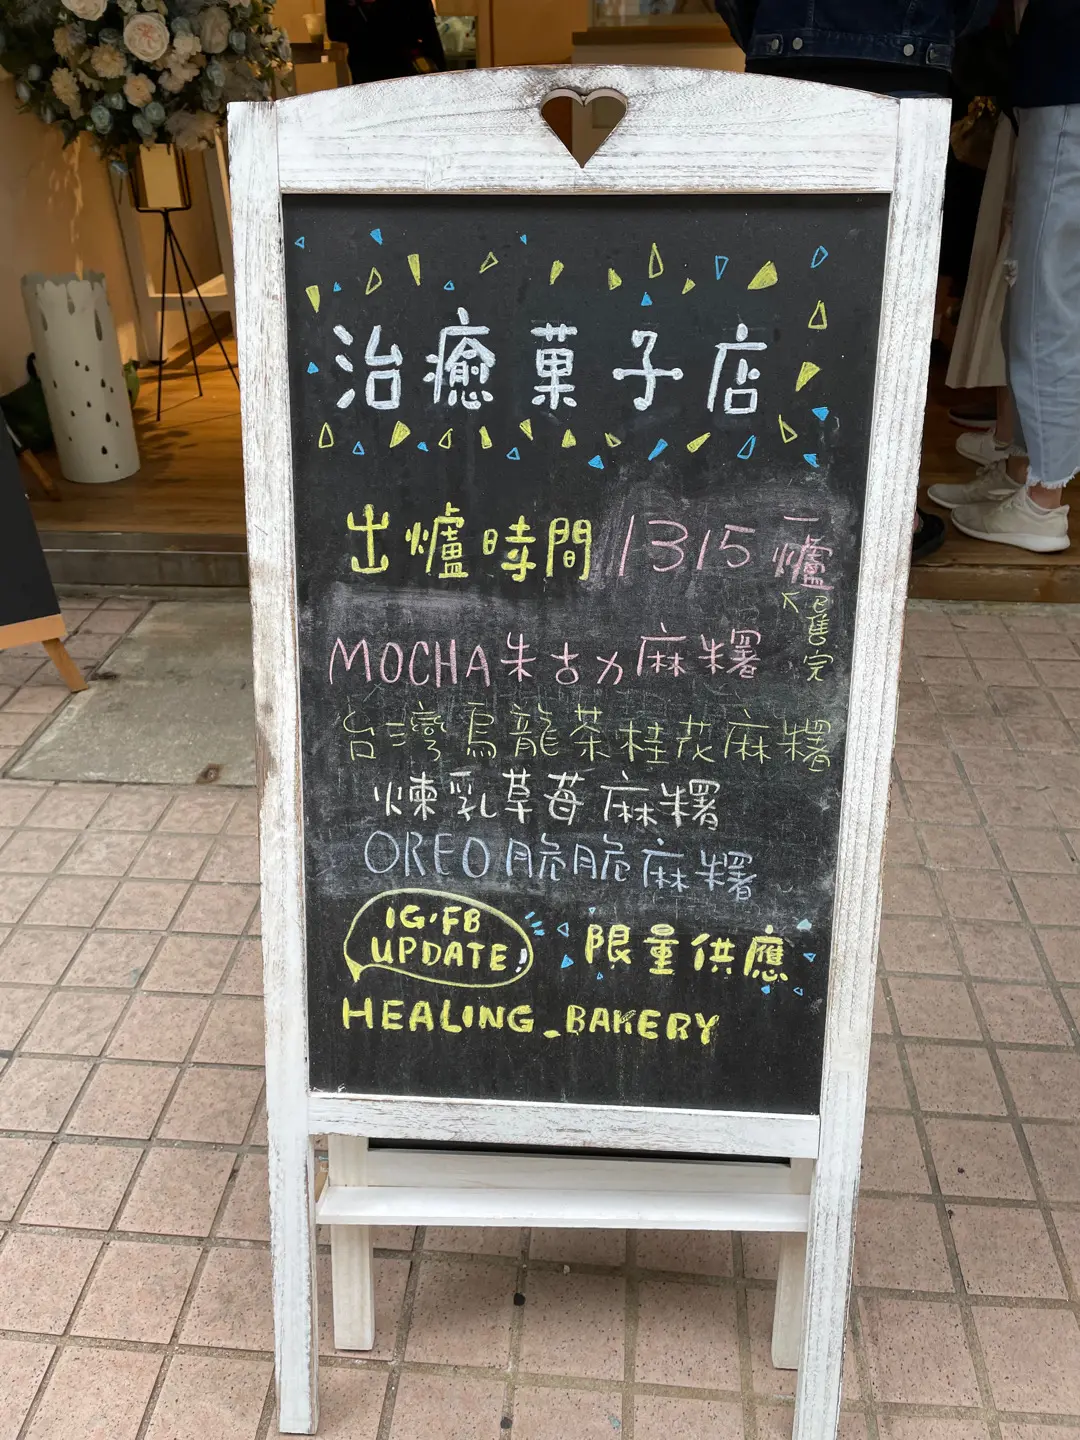 治癒菓子店
出爐時間 1315 一爐
已售完
MOCHA朱古力麻糬
台灣烏龍茶桂花麻糬
煉乳草莓麻糬
OREO脆脆麻糬
IG,FB
UPDATE!
限量供應
HEALING_BAKERY